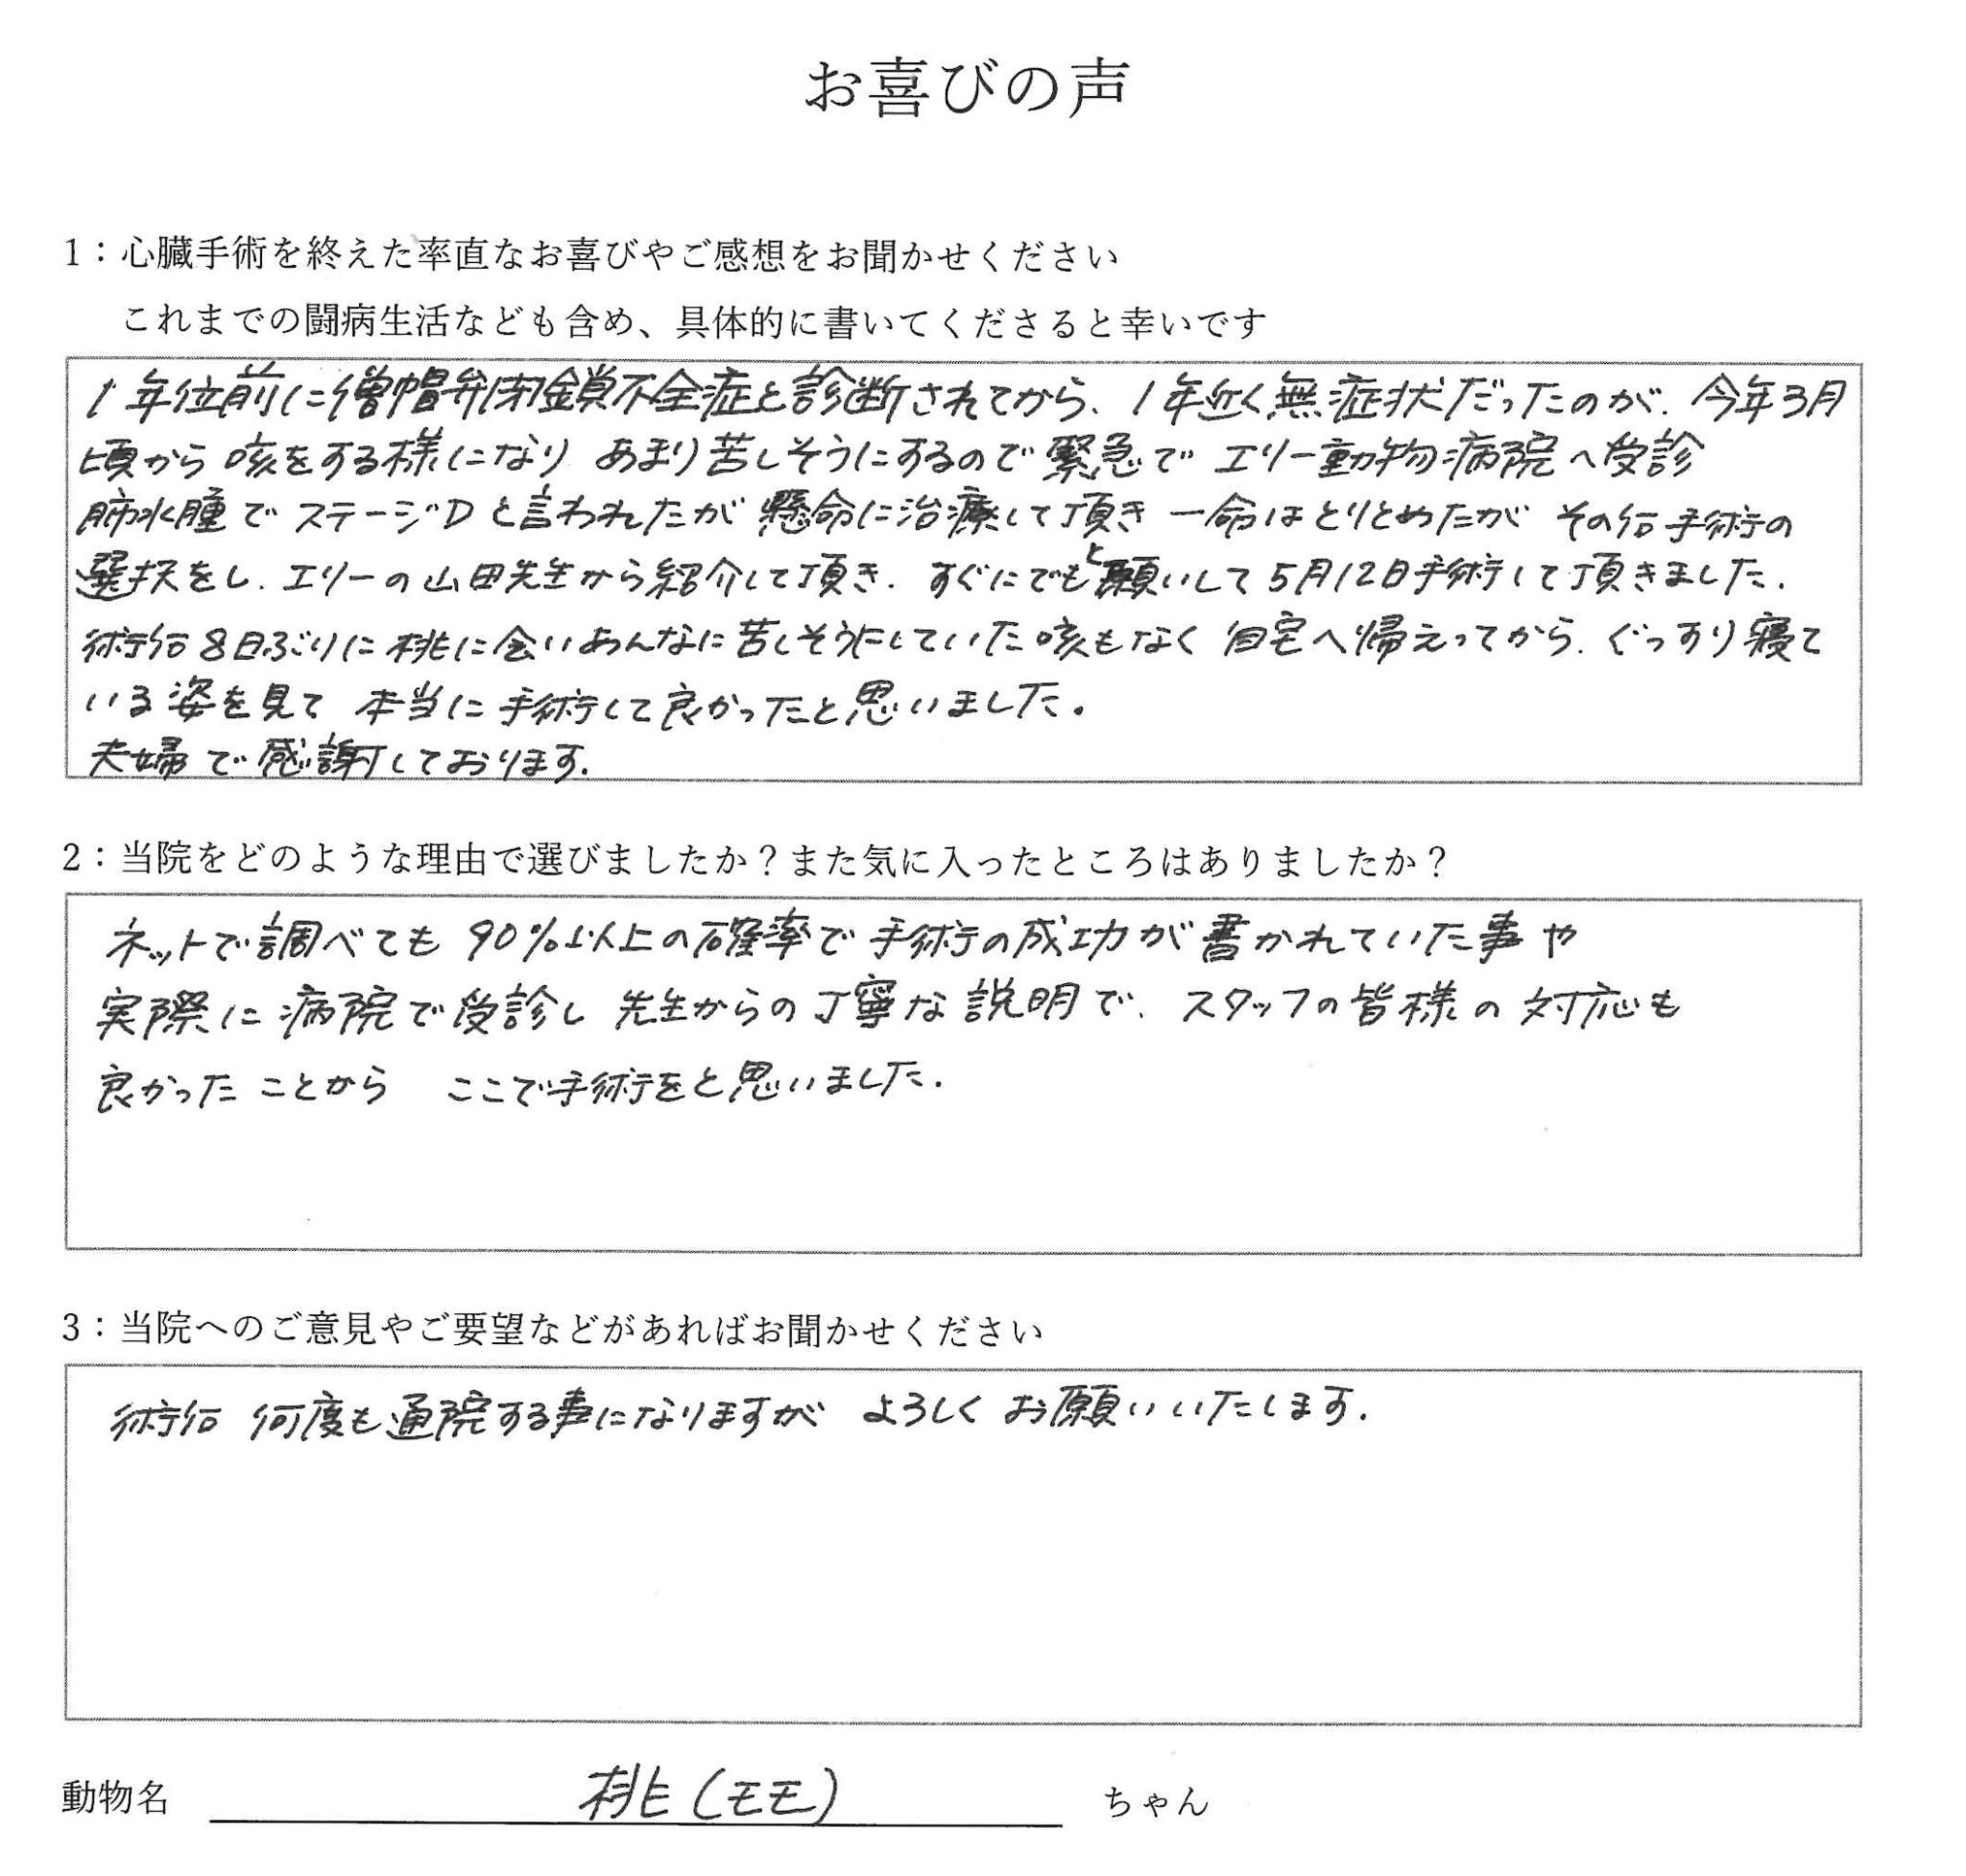 お喜びの声
1：心臓手術を終えた率直なお喜びやご感想をお聞かせください
これまでの闘病生活なども含め、具体的に書いてくださると幸いです
1年位前に僧帽弁閉鎖不全症と診断されてから、1年近く無症状だったのが、今年3月
頃から咳をする様になり あまり苦しそうにするので緊急で エリー動物病院へ受診
肺水腫で ステージDと言われたが 懸命に治療して頂き 一命はとりとめたが その后手術の
選択をし、エリーの山田先生から紹介して頂き、すぐにでもと願いして5月12日手術して頂きました。
術后8日ぶりに桃に会いあんなに苦しそうにしていた咳もなく 自宅へ帰えってから、ぐっすり寝て
いる姿を見て 本当に手術して良かったと思いました。
夫婦で感謝しております。
2：当院をどのような理由で選びましたか？また気に入ったところはありましたか？
ネットで調べても 90%以上の確率で手術の成功が書かれていた事や
実際に病院で受診し 先生からの丁寧な説明で、スタッフの皆様の対応も
良かったことから ここで手術をと思いました。
3：当院へのご意見やご要望などがあればお聞かせください
術后 何度も通院する事になりますが よろしくお願いいたします。
動物名 桃（モモ） ちゃん